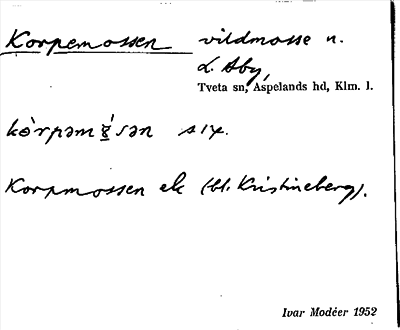 Korpemossen vildmosse n.
L. Aby,
Tveta sn, Aspelands hd, Klm. l.
kòrpəmó̱sən six.
Korpmossen ek (bl. Kristineberg).
Ivar Modéer 1952